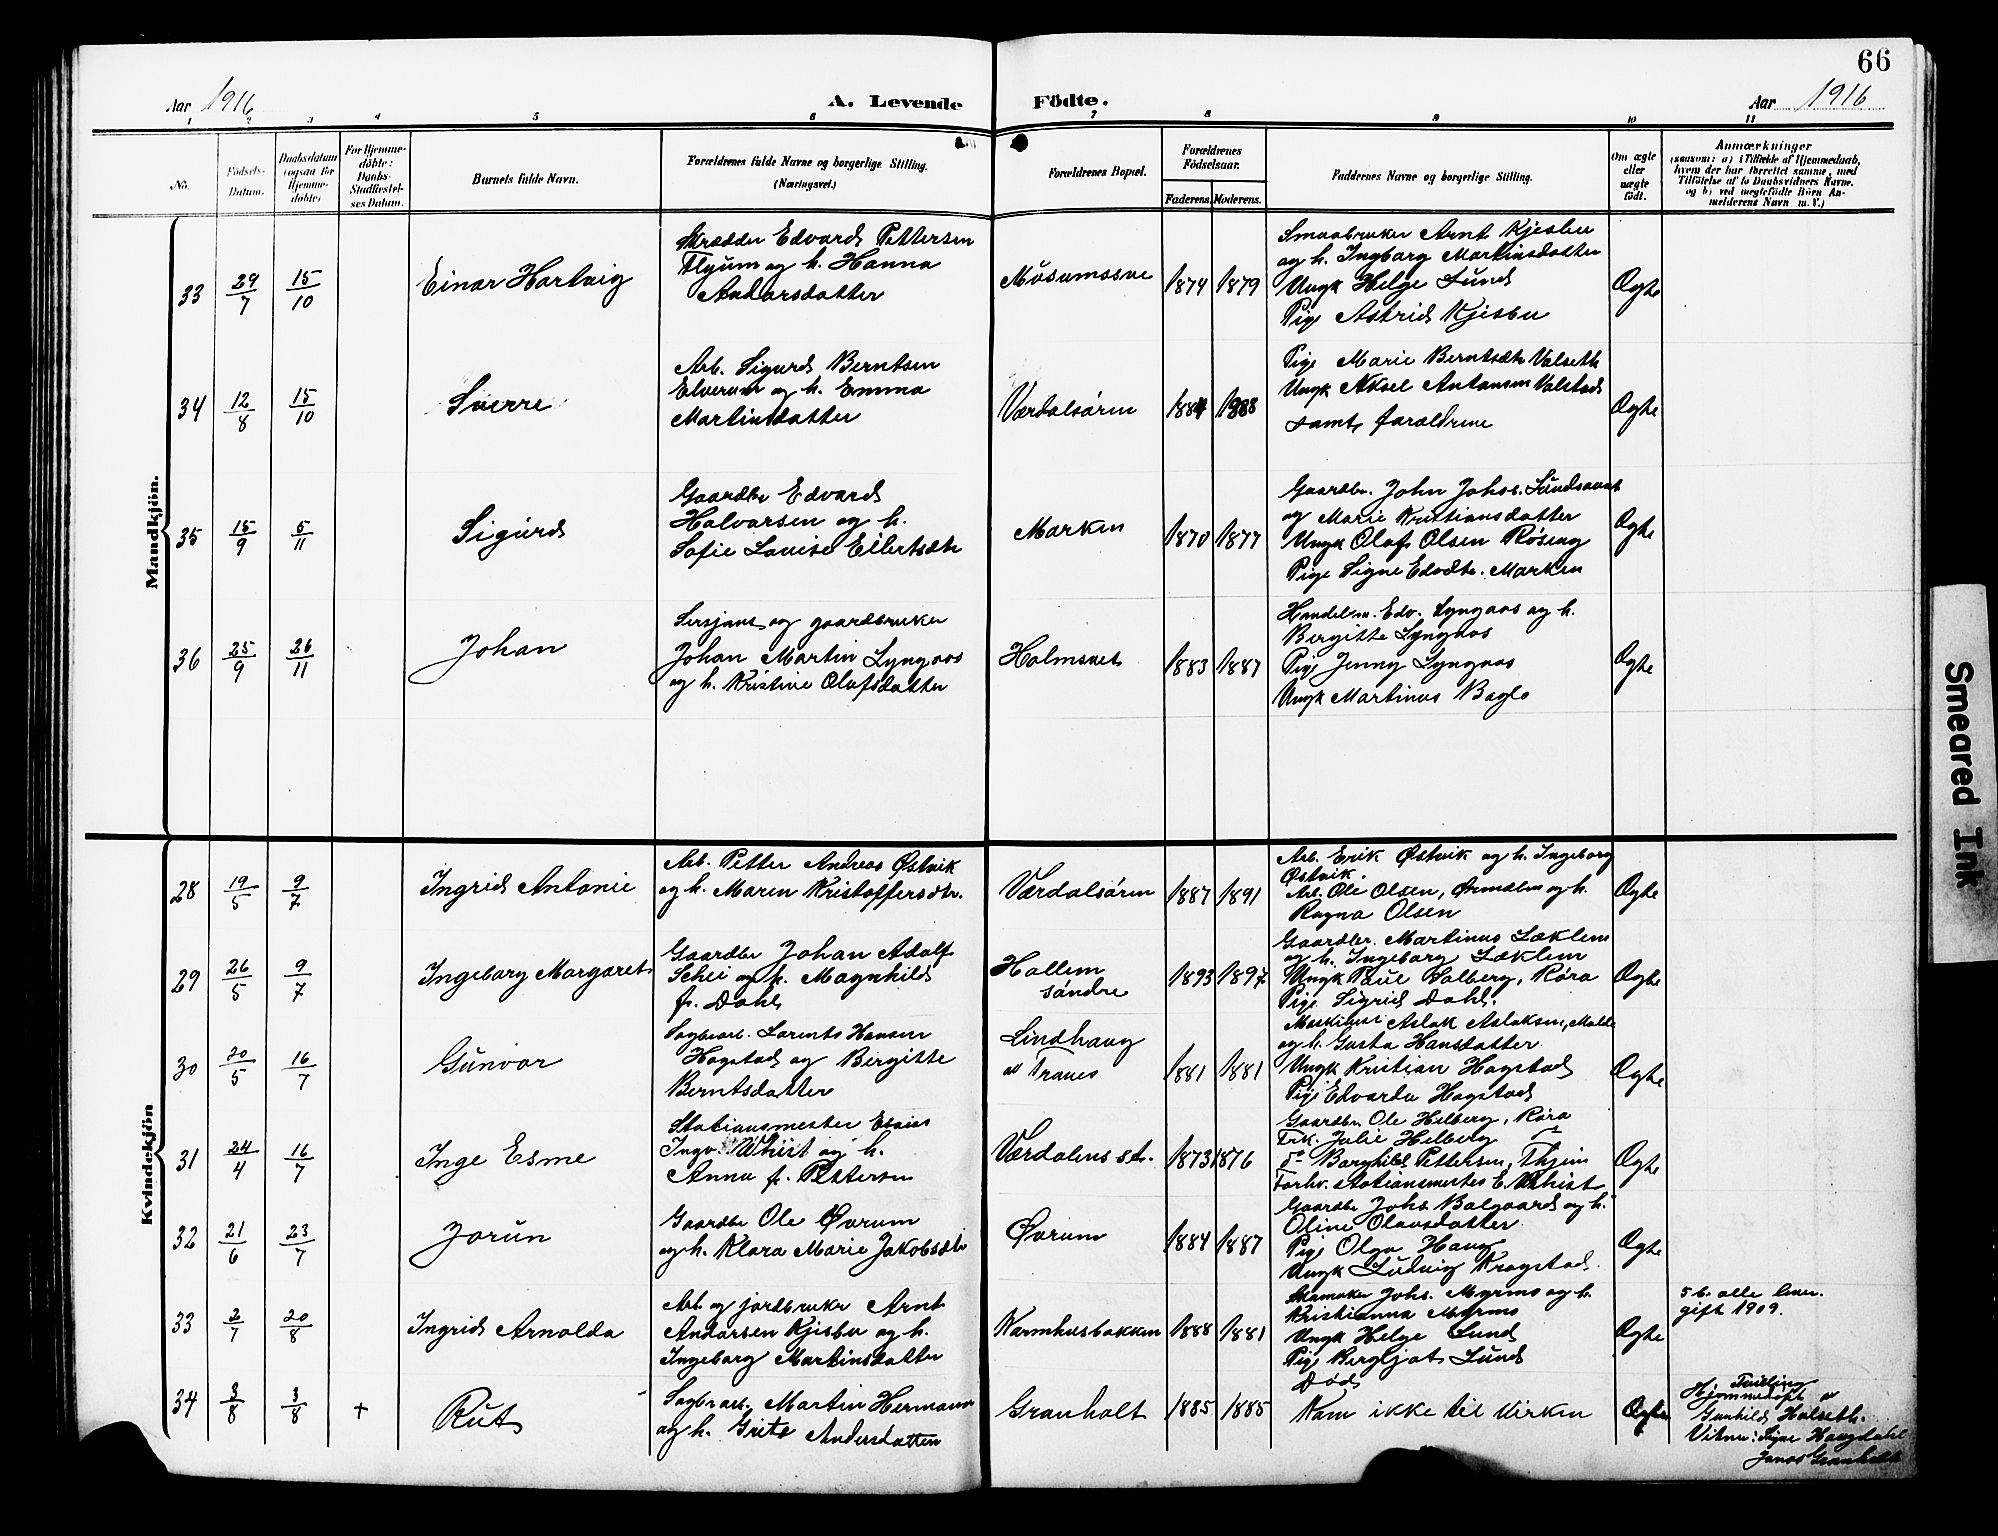 66
Aar 1916 A. Levende Födte. Aar 1916
1 2 3 4 5 6 7 8 9 10 11
No.
Födsels-
Datum.
Daabsdatum
(ogsaa for
Hjemme-
døbte)
For Hjemme-
døbte:
Daabs-
Stadfæstel-
ses Datum.
Barnets fulde Navn.
Forældrenes fulde Navne og borgerlige Stilling.
(Næringsvei.)
Forældrenes Bopæl.
Forældrenes
Födselsaar.
Faderens. Moderens.
Faddernes Navne og borgerlige Stilling.
Om ægte
eller
uægte
født.
Anmærkninger
(saasom: a) i Tilfælde af Hjemmedaab,
hvem der har forrettet samme, med
Tilföielse af to Daabsvidners Navne,
og b) ved uegtefødte Börn An-
melderens Navn m. V.)
Mandkjön.
33 29/7 15/10 Einar Hartvig
Skrædder Edvard Pettersen
Flyum og h. Hanna
Andorsdatter
Mösumssve 1874 1879
Smaabruker Arnt Kjesbu
og h. Ingborg Martinsdatter
Ungk Helge Lund
Pige Astrid Kjesbu
Ægte
34 12/8 15/10 Sverre
Arb. Sigurd Berntsen
Elverum og h. Emma
Martinsdatter
Værdalsören 1884 1888
Pige Marie Berntsdtr Valseth
Ungk Aksel Antonsen Valstad
samt forældrene
Ægte
35 15/9 5/11 Sigurd
Gaardbr Edvard
Halvorsen og h.
Sofie Lovise Eilertsdtr
Marken 1870 1877
Gaardbr. John Johs.
og Marie Kristiansdatter
Ungk Olaf Olsen Røseng
Pige Signe Edvdtr. Marken
Ægte
36 25/9 26/11 Johan
Sersjant og gaardbruker
Johan Martin Lyngaas
og h. Kristine Olafsdatter
Holmsvet 1883 1887
Handelsm. Edv. Lyngaas og h.
Bergitte Lyngaas
Pige Jenny Lyngaas
Ungk Martinus Baglo
Ægte
Kvindekjön
28 19/5 9/7 Ingrid Antonie
Arb. Petter Andreas Østvik
og h. Maren Kristoffersdtr.
Værdalsören 1887 1891
Arb. Erik Østvik og h. Ingeborg
Østvik.
Arb. Ole Olsen, Ørmelen og h.
Ragna Olsen
Ægte
29 26/5 9/7 Ingeborg Margaret
Gaardbr Johan Adolf
Schei og h. Magnhild
f. Dahl
Hallem
søndre
1893 1897
Gaardbr. Martinus Læklem
og h. Ingeborg Læklem
Ungk Paul Salberg, Røra
Pige Sigrid Dahl.
Ægte
30 20/5 16/7 Gunvor
Sagbrarb. Lorents Hansen
Hagstad og Bergitte
Berntsdatter
Lindhaug
av Trones
1881 1881
Maskinist Aslak Aslaksen, Molde
og h. Gusta Hansdatter
Ungk Kristian Hagstad
Pige Edvarda Hagstad
Ægte
31 24/4 16/7 Inge Esme
Stationsmester Elvius
Ingv. Whist og h.
Anna f. Pettersen
Værdalens st. 1873 1876
Gaardbr. Ole Helberg, Røra
Frk. Julie Helberg
do Borghild Pettersen, Thjem
Forhv. stationsmester E. Whist
Ægte
32 21/6 23/7 Jorun
Gaardbr Ole Ørum
og h. Klara Marie Jakobsdtr
Øvrum 1884 1887
Gaardbr Johs. Balgaard og h.
Oline Olausdatter
Pige Olga Haug
Ungk Ludvig Kragstad.
Ægte
33 2/7 20/8 Ingrid Arnolda
Arb og jordbruker Arnt
Andorsen Kjesbu og h.
Ingeborg Martinsdatter
Karmhusbakken 1888 1881
Skomaker Johs. Myrmo og h.
Kristianna Myrmo
Ungk Helge Lund
Pige Bergljot Lund
Ægte
5 b. alle lever.
gift 1909.
34 3/8 3/8 + Rut
Sagbrarb. Martin Hermann
og h. Grete Andersdatter
Granholt 1885 1885
Død
Kom ikke til kirken
Ægte
Tvilling
Hjemmedøpt av
Gunhild Halseth.
Vitner: Signe Haugdahl
Jonas Granholt
Smeared Ink